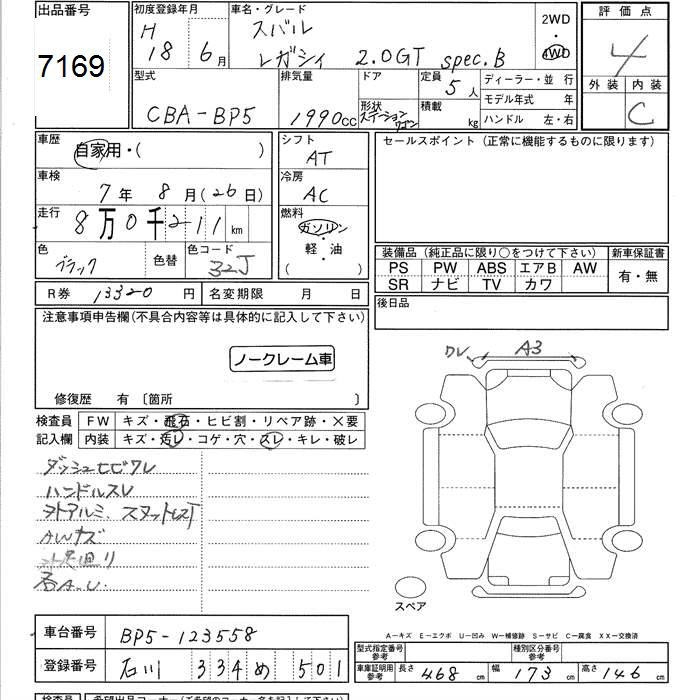 出品番号
7169
初度登録年月
H
18
6月
車名・グレード
スバル
レガシィ 2.0GT spec.B
2WD
4WD
評価点
4
外装 内装
C
型式
CBA-BP5
排気量
1990cc
ドア
形状
ステーションワゴン
定員
5人
積載
kg
ディーラー・並 行
モデル年式 年
ハンドル 左・右
車歴
自家用・( )
車検
7年 8月(26日)
走行
8万0千211km
色
ブラック
色替
色コード
32J
シフト
AT
冷房
AC
燃料
ガソリン
・
軽・油
( )
セールスポイント(正常に機能するものに限ります)
装備品(純正品に限り○をつけて下さい)
新車保証書
PS PW ABS エアB AW
SR ナビ TV カワ
有・無
R券 13320円
名変期限 月 日
後日品
注意事項申告欄(不具合内容等は具体的に記入して下さい)
ノークレーム車
修復歴 有〔箇所 〕
検査員
記入欄
FW キズ・飛石・ヒビ割・リペア跡・×要
内装 キズ・汚レ・コゲ・穴・スレ・キレ・破レ
ダッシュヒビワレ
ハンドルスレ
AWキズ
各A.U.
ワレ A3
スペア
A－キズ E－エクボ U－凹み W－補修跡 S－サビ C－腐食 XX－交換済
車台番号
BP5-123558
登録番号
石川 334 め 501
型式指定番号
参考
種別区分番号
参考
車庫証明用
参考
長さ 468cm 幅 173cm 高さ 146cm
検査員
希望出品コーナー(ご希望のコーナー名を記